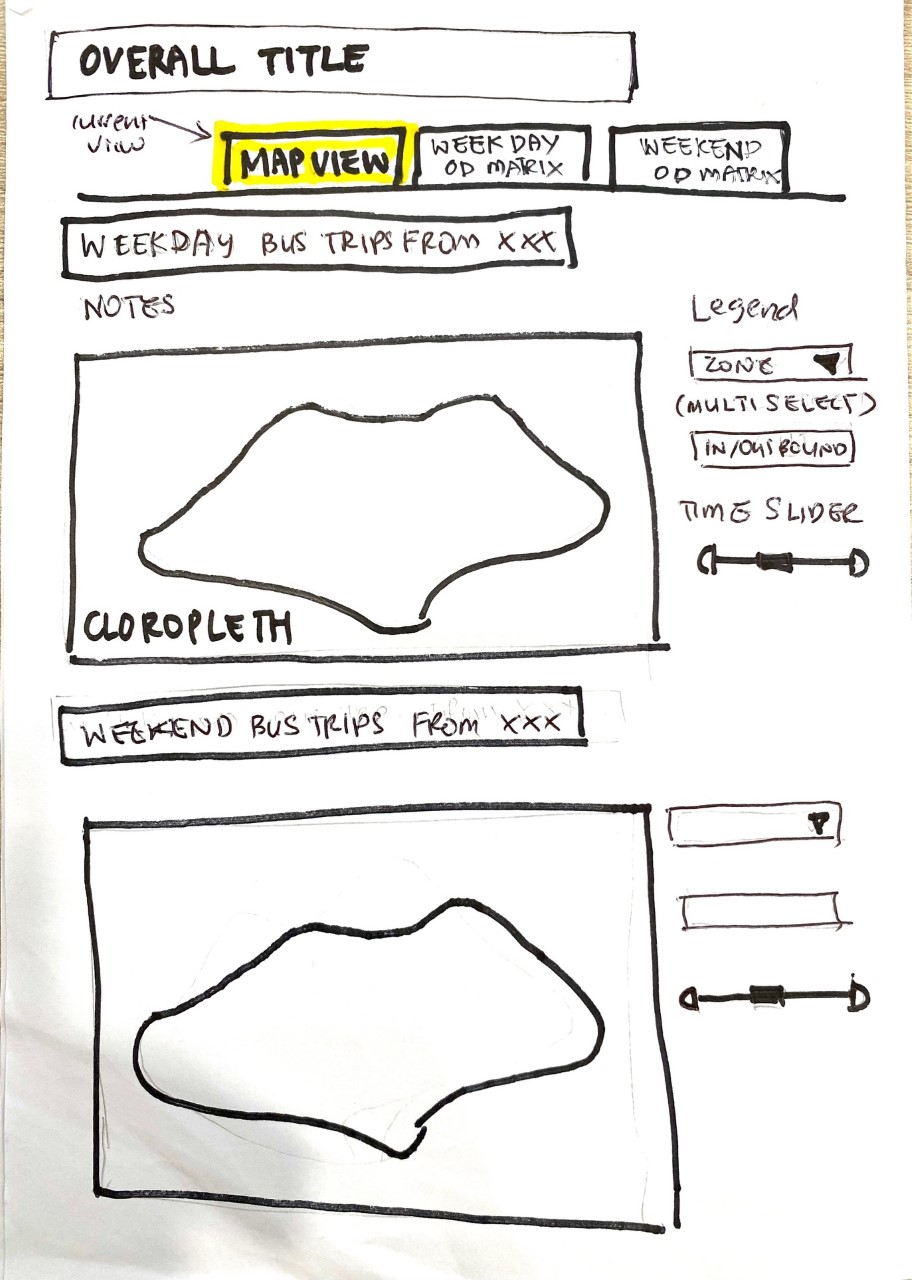 OVERALL TITLE
current
view
MAP VIEW
WEEKDAY
OD MATRIX
WEEKEND
OD MATRIX
WEEKDAY BUS TRIPS FROM XXX
NOTES
Legend
ZONE
(MULTI SELECT)
IN/OUTBOUND
TIME SLIDER
CLOROPLETH
WEEKEND BUS TRIPS FROM XXX